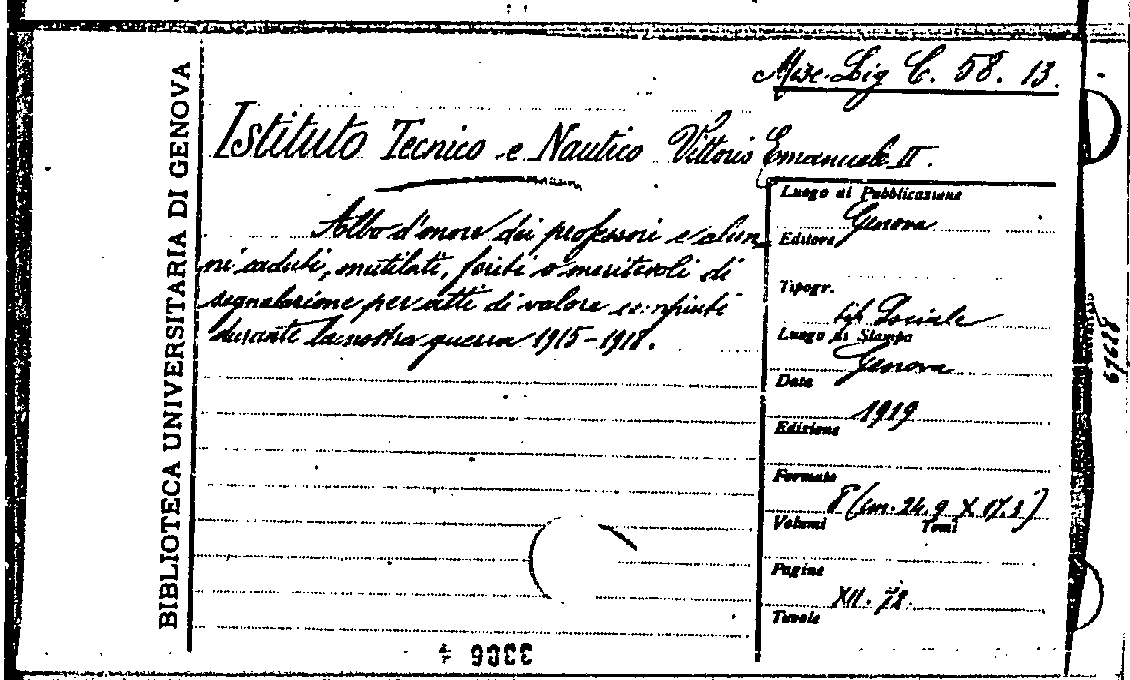 Misc. Lig C. 58. 13.
Istituto Tecnico e Nautico Vittorio Emanuele II.
Albo d'onore dei professori e alun
ni caduti, mutilati, feriti o meritevoli di
segnalazione per atti di valore compiuti
durante la nostra guerra 1915-1918.
BIBLIOTECA UNIVERSITARIA DI GENOVA
Luogo di Pubblicazione
Genova
Editore
Tipogr.
tip. Sociale
Luogo di Stampa
Genova
Data
1919
Edizione
Formato
8 (cm. 24.9 X 17.3)
Volumi Tomi
Pagine
XII. 72.
Tavole
67688